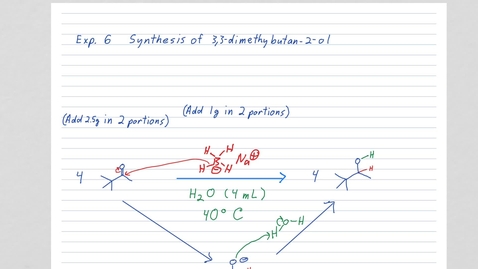 Exp. 6 Synthesis of 3,3-dimethybutan-2-ol
(Add 1g in 2 portions)
(Add 2.5g in 2 portions)
H
H B H Na ⊕
H ⊖
4 O 4 O H
H
H2O (4 mL)
40° C
O H
H
O ⊖
H